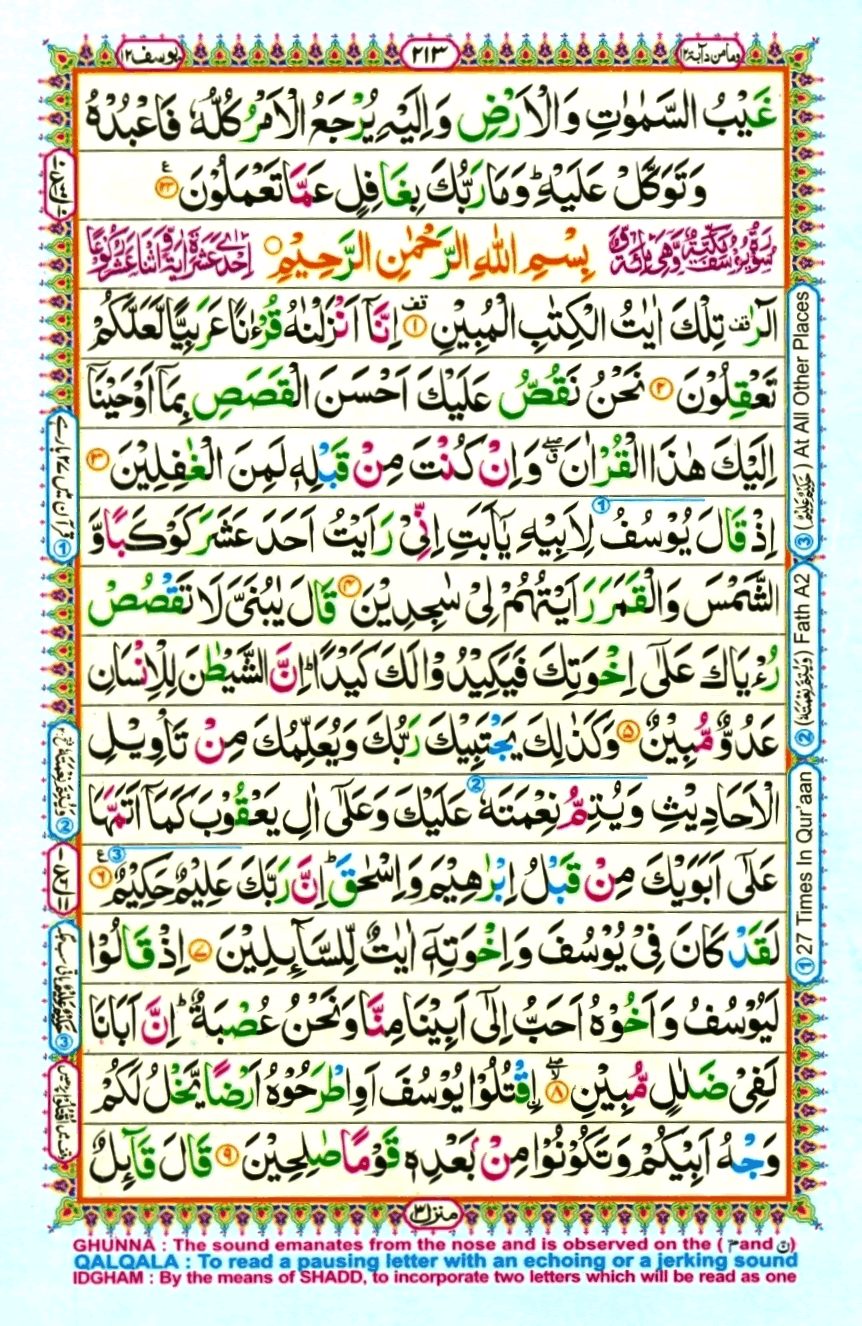 يوسف ١٢
٢١٣
وما من دآبة ١٢
غَيْبُ السَّمٰوٰتِ وَالْاَرْضِ وَاِلَيْهِ يُرْجَعُ الْاَمْرُ كُلُّهٗ فَاعْبُدْهُ
وَتَوَكَّلْ عَلَيْهِ ؕ وَمَا رَبُّكَ بِغَافِلٍ عَمَّا تَعْمَلُوْنَ ۝١٢٣
بِسْمِ اللّٰهِ الرَّحْمٰنِ الرَّحِيْمِ ۝
الٓرٰ ۟ تِلْكَ اٰيٰتُ الْكِتٰبِ الْمُبِيْنِ ۝١ اِنَّآ اَنْزَلْنٰهُ قُرْءٰنًا عَرَبِيًّا لَّعَلَّكُمْ
تَعْقِلُوْنَ ۝٢ نَحْنُ نَقُصُّ عَلَيْكَ اَحْسَنَ الْقَصَصِ بِمَآ اَوْحَيْنَآ
اِلَيْكَ هٰذَا الْقُرْاٰنَ ۖ وَاِنْ كُنْتَ مِنْ قَبْلِهٖ لَمِنَ الْغٰفِلِيْنَ ۝٣
اِذْ قَالَ يُوْسُفُ لِاَبِيْهِ يٰٓاَبَتِ اِنِّىْ رَاَيْتُ اَحَدَ عَشَرَ كَوْكَبًا وَّ
الشَّمْسَ وَالْقَمَرَ رَاَيْتُهُمْ لِىْ سٰجِدِيْنَ ۝٤ قَالَ يٰبُنَىَّ لَا تَقْصُصْ
رُءْيَاكَ عَلٰٓى اِخْوَتِكَ فَيَكِيْدُوْا لَكَ كَيْدًا ؕ اِنَّ الشَّيْطٰنَ لِلْاِنْسَانِ
عَدُوٌّ مُّبِيْنٌ ۝٥ وَكَذٰلِكَ يَجْتَبِيْكَ رَبُّكَ وَيُعَلِّمُكَ مِنْ تَاْوِيْلِ
الْاَحَادِيْثِ وَيُتِمُّ نِعْمَتَهٗ عَلَيْكَ وَعَلٰٓى اٰلِ يَعْقُوْبَ كَمَآ اَتَمَّهَا
عَلٰٓى اَبَوَيْكَ مِنْ قَبْلُ اِبْرٰهِيْمَ وَاِسْحٰقَ ؕ اِنَّ رَبَّكَ عَلِيْمٌ حَكِيْمٌ ۝٦
لَقَدْ كَانَ فِىْ يُوْسُفَ وَاِخْوَتِهٖٓ اٰيٰتٌ لِّلسَّآئِلِيْنَ ۝٧ اِذْ قَالُوْا
لَيُوْسُفُ وَاَخُوْهُ اَحَبُّ اِلٰٓى اَبِيْنَا مِنَّا وَنَحْنُ عُصْبَةٌ ؕ اِنَّ اَبَانَا
لَفِىْ ضَلٰلٍ مُّبِيْنِ ۝٨ اۨقْتُلُوْا يُوْسُفَ اَوِ اطْرَحُوْهُ اَرْضًا يَّخْلُ لَكُمْ
وَجْهُ اَبِيْكُمْ وَتَكُوْنُوْا مِنْۢ بَعْدِهٖ قَوْمًا صٰلِحِيْنَ ۝٩ قَالَ قَآئِلٌ
منزل ٣
① 27 Times In Qur'aan
② (وَيُتِمُّ نِعْمَتَهٗ) Fath A2
③ (حَكِيْمٌ عَلِيْمٌ) At All Other Places
GHUNNA : The sound emanates from the nose and is observed on the (م and ن)
QALQALA : To read a pausing letter with an echoing or a jerking sound
IDGHAM : By the means of SHADD, to incorporate two letters which will be read as one